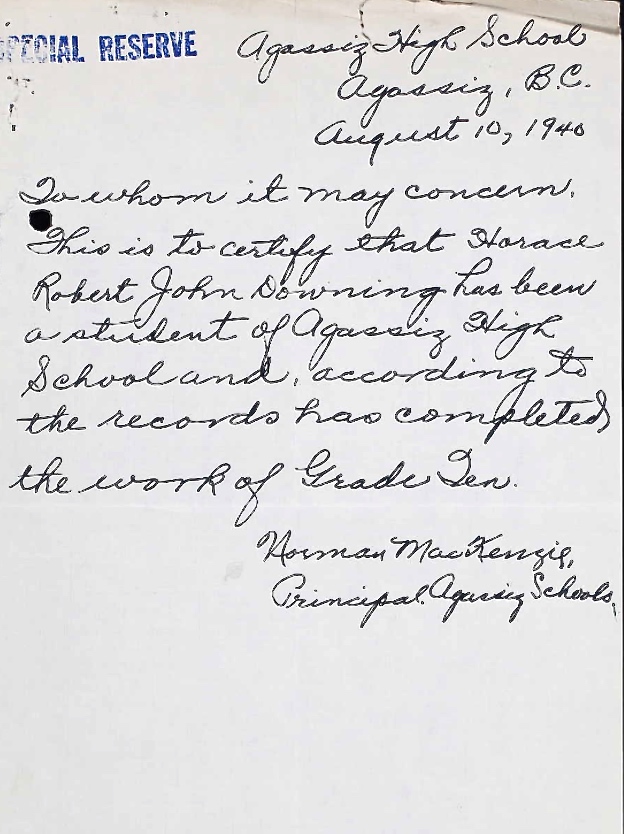 SPECIAL RESERVE
Agassiz High School
Agassiz, B.C.
August 10, 1940
To whom it may concern.
This is to certify that Horace
Robert John Downing has been
a student of Agassiz High
School and, according to
the records has completed
the work of Grade Ten.
Norman MacKenzie,
Principal. Agassiz Schools.